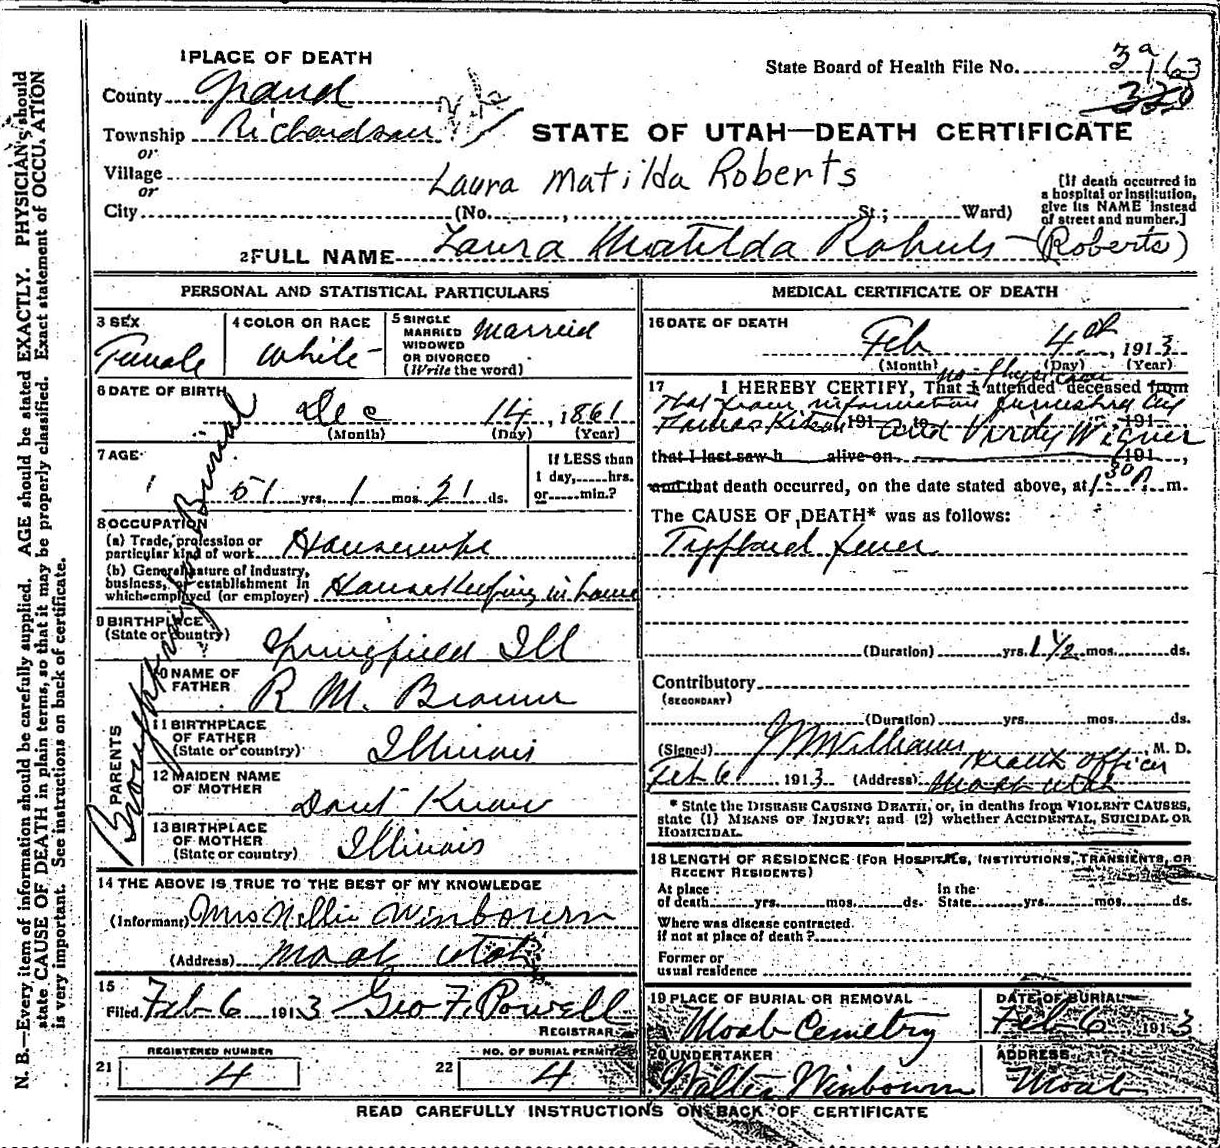 1 PLACE OF DEATH
County Grand
Township Richardson
or
Village
or
City (No. , St.; Ward)
State Board of Health File No. 39 163
320
STATE OF UTAH—DEATH CERTIFICATE
Laura Matilda Roberts
[If death occurred in
a hospital or institution,
give its NAME instead
of street and number.]
2 FULL NAME Laura Matilda Roberts (Roberts)
PERSONAL AND STATISTICAL PARTICULARS
3 SEX
Female
4 COLOR OR RACE
White
5 SINGLE
MARRIED
WIDOWED
OR DIVORCED
(Write the word)
Married
6 DATE OF BIRTH
Dec 14, 1861
(Month) (Day) (Year)
7 AGE
51 yrs. 1 mos. 21 ds.
If LESS than
1 day, hrs.
or min.?
8 OCCUPATION
(a) Trade, profession or
particular kind of work Housewife
(b) General nature of industry,
business, or establishment in
which employed (or employer) Housekeeping in home
9 BIRTHPLACE
(State or country)
Springfield Ill
PARENTS
10 NAME OF
FATHER
R M. Brown
11 BIRTHPLACE
OF FATHER
(State or country)
Illinois
12 MAIDEN NAME
OF MOTHER
Dont Know
13 BIRTHPLACE
OF MOTHER
(State or country)
Illinois
Brought for Burial
14 THE ABOVE IS TRUE TO THE BEST OF MY KNOWLEDGE
(Informant) Mrs Nellie Winbourn
(Address) Moab Utah
15
Filed Feb 6 1913 Geo F. Powell
REGISTRAR
21 REGISTERED NUMBER
4
22 NO. OF BURIAL PERMIT
4
MEDICAL CERTIFICATE OF DEATH
16 DATE OF DEATH
Feb 4th, 1913
(Month) (Day) (Year)
no Physician
17 I HEREBY CERTIFY, That I attended deceased from
That from information furnished by
191 to and Virdy Wigner 191
that I last saw h alive on 191 ,
and that death occurred, on the date stated above, at 1:30 P m.
The CAUSE OF DEATH* was as follows:
Typhoid fever
(Duration) yrs. 1 1/2 mos. ds.
Contributory
(SECONDARY)
(Duration) yrs. mos. ds.
(Signed) J W Williams, M. D.
Health Officer
Feb 6 1913 (Address) Moab Utah
* State the DISEASE CAUSING DEATH, or, in deaths from VIOLENT CAUSES,
state (1) MEANS OF INJURY; and (2) whether ACCIDENTAL, SUICIDAL OR
HOMICIDAL.
18 LENGTH OF RESIDENCE (FOR HOSPITALS, INSTITUTIONS, TRANSIENTS, OR
RECENT RESIDENTS)
At place
of death yrs. mos. ds.
In the
State yrs. mos. ds.
Where was disease contracted
if not at place of death?
Former or
usual residence
19 PLACE OF BURIAL OR REMOVAL
Moab Cemetry
DATE OF BURIAL
Feb 6 1913
20 UNDERTAKER
Walter Winbourn
ADDRESS
Moab
READ CAREFULLY INSTRUCTIONS ON BACK OF CERTIFICATE
N. B.—Every item of information should be carefully supplied. AGE should be stated EXACTLY. PHYSICIANS should
state CAUSE OF DEATH in plain terms, so that it may be properly classified. Exact statement of OCCUPATION
is very important. See instructions on back of certificate.